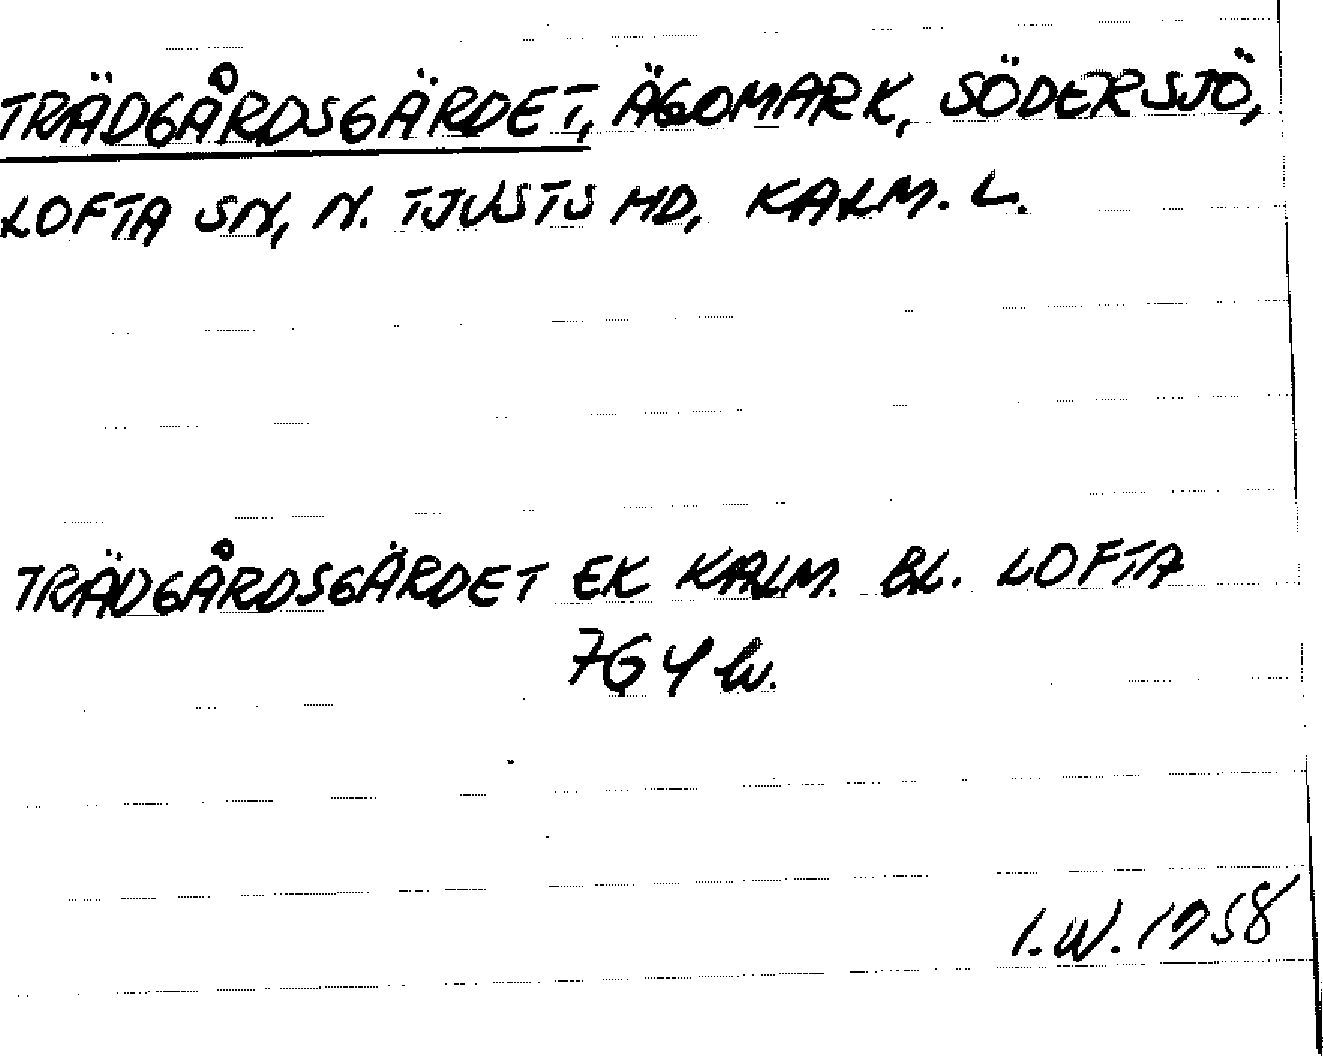 TRÄDGÅRDSGÄRDET, ÄGOMARK, SÖDERSJÖ,
LOFTA SN, N. TJUSTS HD, KALM. L.
TRÄDGÅRDSGÄRDET EK KALM. BL. LOFTA
764
I.W. 1958